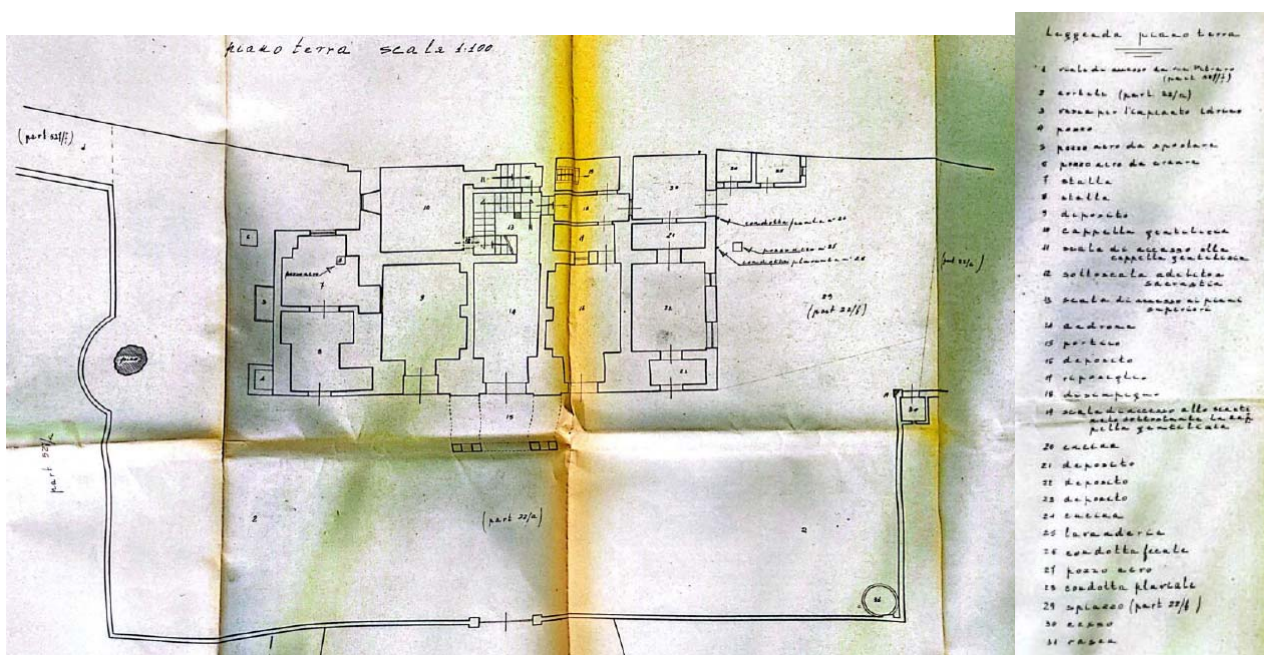 piano terra scala 1:100
(part 527/1)
1
10
11
19
18
20
24
25
condotta fecale n° 26
21
17
pozzo nero n° 25
condotta pluviale n° 28
13
6
pozzo nero
7
5
3
9
14
16
22
29
(part 22/b)
(part 22/a)
pino
8
4
23
15
30
part 527/2
2
(part 22/a)
2
31
Leggenda piano terra
1 viale di accesso da via
(part 527/1)
2 cortile (part 22/a)
3 vasca per l'impianto idrico
4 pozzo
5 pozzo nero da spostare
6 pozzo nero da creare
7 stalla
8 stalla
9 deposito
10 cappella gentilizia
11 scala di accesso alla
cappella gentilizia
12 sottoscala adibito a
sacrestia
13 scala di accesso ai piani
superiori
14 androne
15 portico
16 deposito
17 ripostiglio
18 disimpegno
19 scala di accesso allo scanti
nato sottostante la cap
pella gentilizia
20 cucina
21 deposito
22 deposito
23 deposito
24 cucina
25 lavanderia
26 condotta fecale
27 pozzo nero
28 condotta pluviale
29 spiazzo (part 22/b)
30 cesso
31 vasca